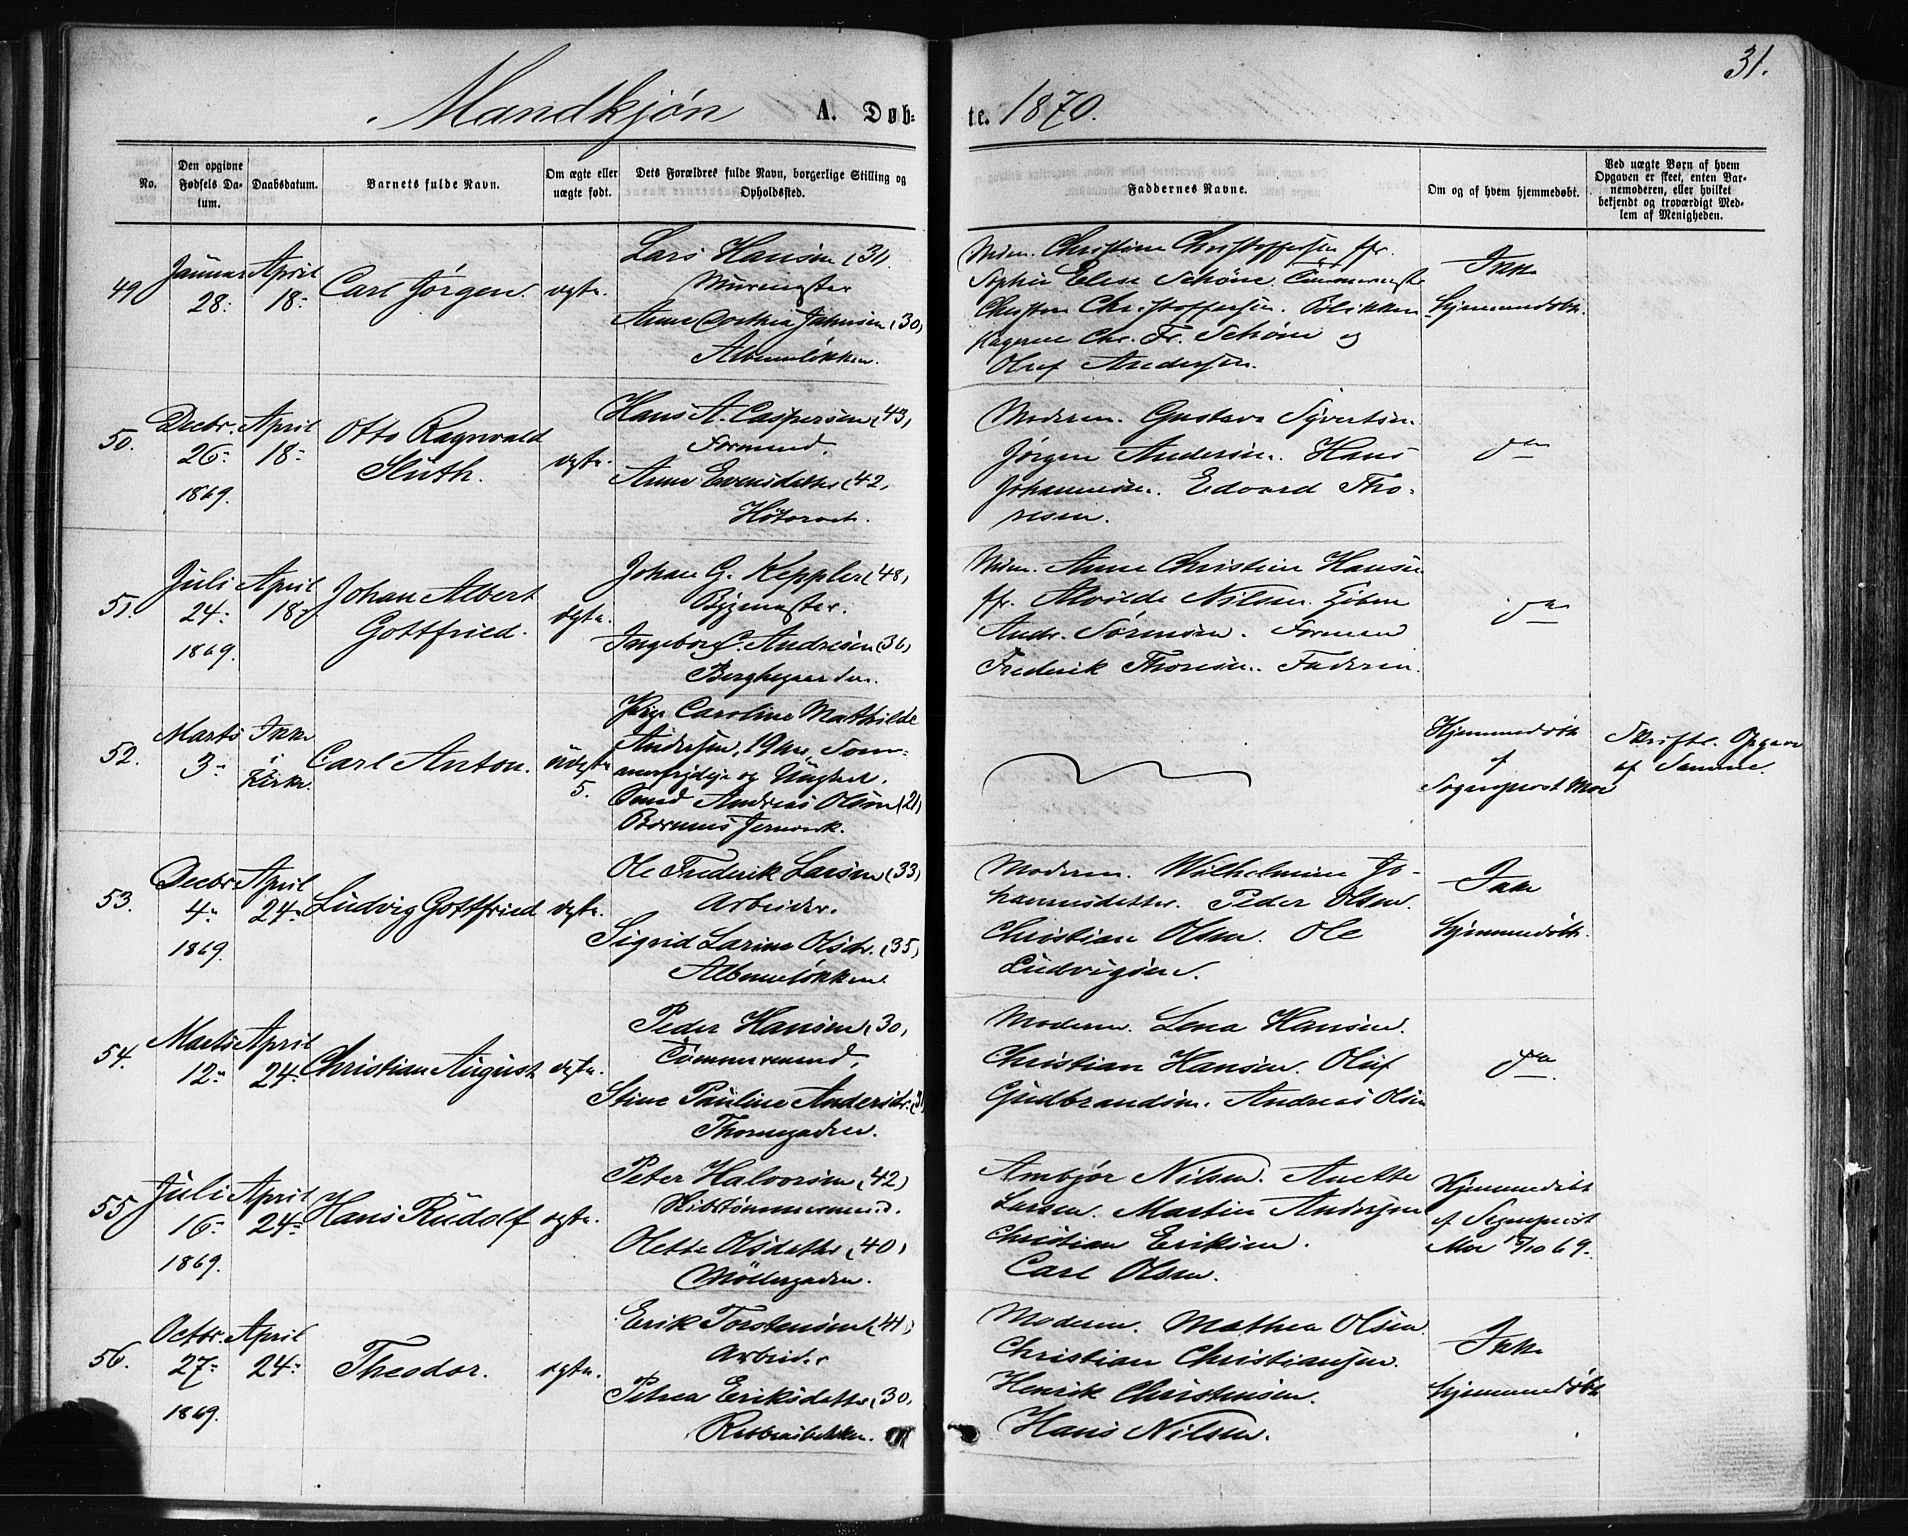 31.
Mandkjøn A. Døb-
te. 1870.
No.
Den opgivne Fødsels Da-
tum.
Daabsdatum.
Barnets fulde Navn.
Om ægte eller
uægte født.
Dets Forældres fulde Navn, borgerlige Stilling og
Opholdssted.
Faddernes Navne.
Om og af hvem hjemmedøbt.
Ved uægte Børn af hvem
Opgaven er skeet, enten Bar-
nemoderen, eller hvilket
bekjendt og troværdigt Med-
lem af Menigheden.
49.
Januar
28.
April
18.
Carl Jørgen.
ægte.
Lars Hansen (31)
Murmester
Anne Dorthea Jahnsen (30)
Christine Christoffersen
Sophie Elise Schøne.
Christen Christoffersen. Blikken
Chr. Fr. Schøne og
Oluf Andersen.
Ikke
hjemmedøbt.
50.
Decbr.
26.
1869.
April
18.
Otto Ragnvald
ægte.
Hans A. Caspersen (43)
Formand.
Anne Evensdatter (42)
Høtorvet.
Moderen. Gustava Syvertsen.
Jørgen Andersen. Hans
Johannesen. Edvard Tho-
resen.
do
51.
Juli
24.
1869.
April
18.
Johan Albert
Gottfried.
ægte.
Johan G. Keppler (48)
Bygmester.
Ingeborg C. Andresen (36)
Berghsgaarden.
Anne Christine Hansen
Alvilde Nilsen.
Andr. Sørensen. Formand
Frederik Thoresen. Faderen.
do
52.
Marts
3.
Ikke
i
Kirke.
Carl Anton.
uægte
5.
Pige Caroline Mathilde
Andersen, 19 Aar,
og Ungkarl.
Smed Andreas Olsen (21)
Bærums Jernverk.
Hjemmedøbt
af
Sogneprest Moe
Skriftl. Opgave
af Samme.
53.
Decbr.
4.
1869.
April
24.
Ludvig Gottfried
ægte.
Ole Frederik Larsen (33)
Arbeider.
Sigrid Larine Olsdr. (35)
Moderen. Wilhelmine Jo-
hannesdatter. Peder Olsen.
Christian Olsen. Ole
Ludvigsen.
Ikke
hjemmedøbt.
54.
Marts
12.
April
24.
Christian August
ægte.
Peder Hansen (30)
Tømmermand,
Stine Pauline Andersdr. (31)
Thornegaden.
Moderen. Lena Hansen.
Christian Hansen. Oluf
Gudbrandsen. Andreas Olsen
do.
55.
Juli
16.
1869.
April
24.
Hans Rudolf
ægte.
Peter Halvorsen (42)
Skibstømmermand.
Olette Olsdatter (40)
Møllergaden.
Ambjør Nilsen. Anette
Larsen. Martin Andersen
Christian Eriksen.
Carl Olsen.
Hjemmedøbt
af Sogneprest
Moe 15/10 69.
56.
Octbr.
27.
1869.
April
24.
Theodor.
ægte.
Erik Torstensen (41)
Arbeider
Petrea Eriksdatter (30)
Moderen. Mathea Olsen.
Christian Christiansen.
Henrik Christensen.
Hans Nilsen.
Ikke
hjemmedøbt